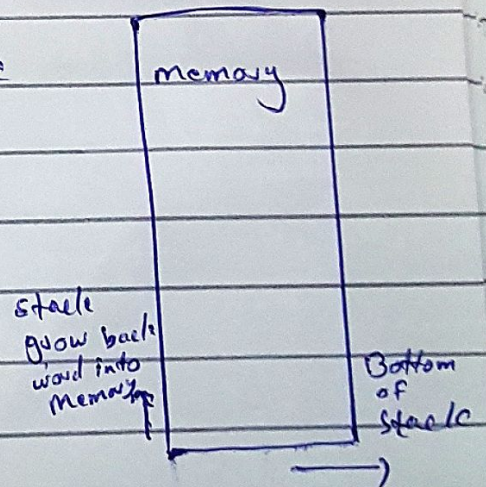 memory
stack
grow back
word into
Memory
Bottom
of
stack